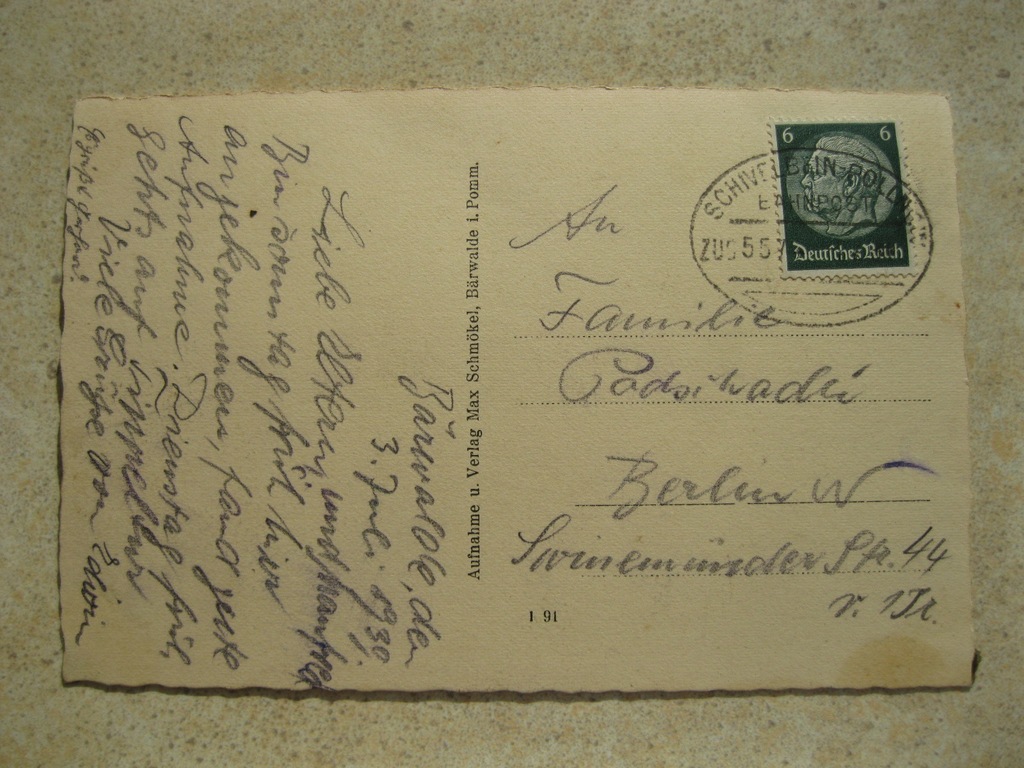 Bärwalde, den
3. Juli 1939
Liebe Eltern und Manfred
Bin Sonntag früh hier
angekommen, fand gute
Aufnahme. Dienstag früh
gehts auf
Viele Grüße von Edwin
Aufnahme u. Verlag Max Schmökel, Bärwalde i. Pomm.
6 6
Deutsches Reich
SCHIVELBEIN-POLLNOW
BAHNPOST
ZUG 557
An
Familie
Berlin N
Swinemünder Str. 44
v. 1Tr.
1 91